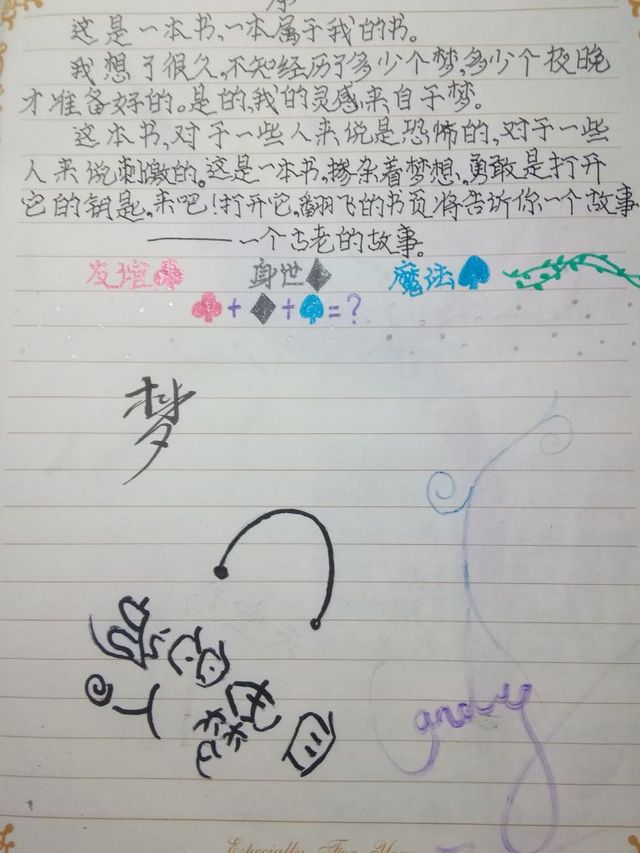 序
这是一本书,一本属于我的书。
我想了很久,不知经历了多少个梦,多少个夜晚
才准备好的。是的,我的灵感,来自于梦。
这本书,对于一些人来说是恐怖的,对于一些
人来说刺激的。这是一本书,掺杂着梦想,勇敢是打开
它的钥匙。来吧!打开它,翻飞的书页,将告诉你一个故事
——一个古老的故事。
友谊♣ 身世♦ 魔法♠
♣+♦+♠=?
梦
andy
Especially For You